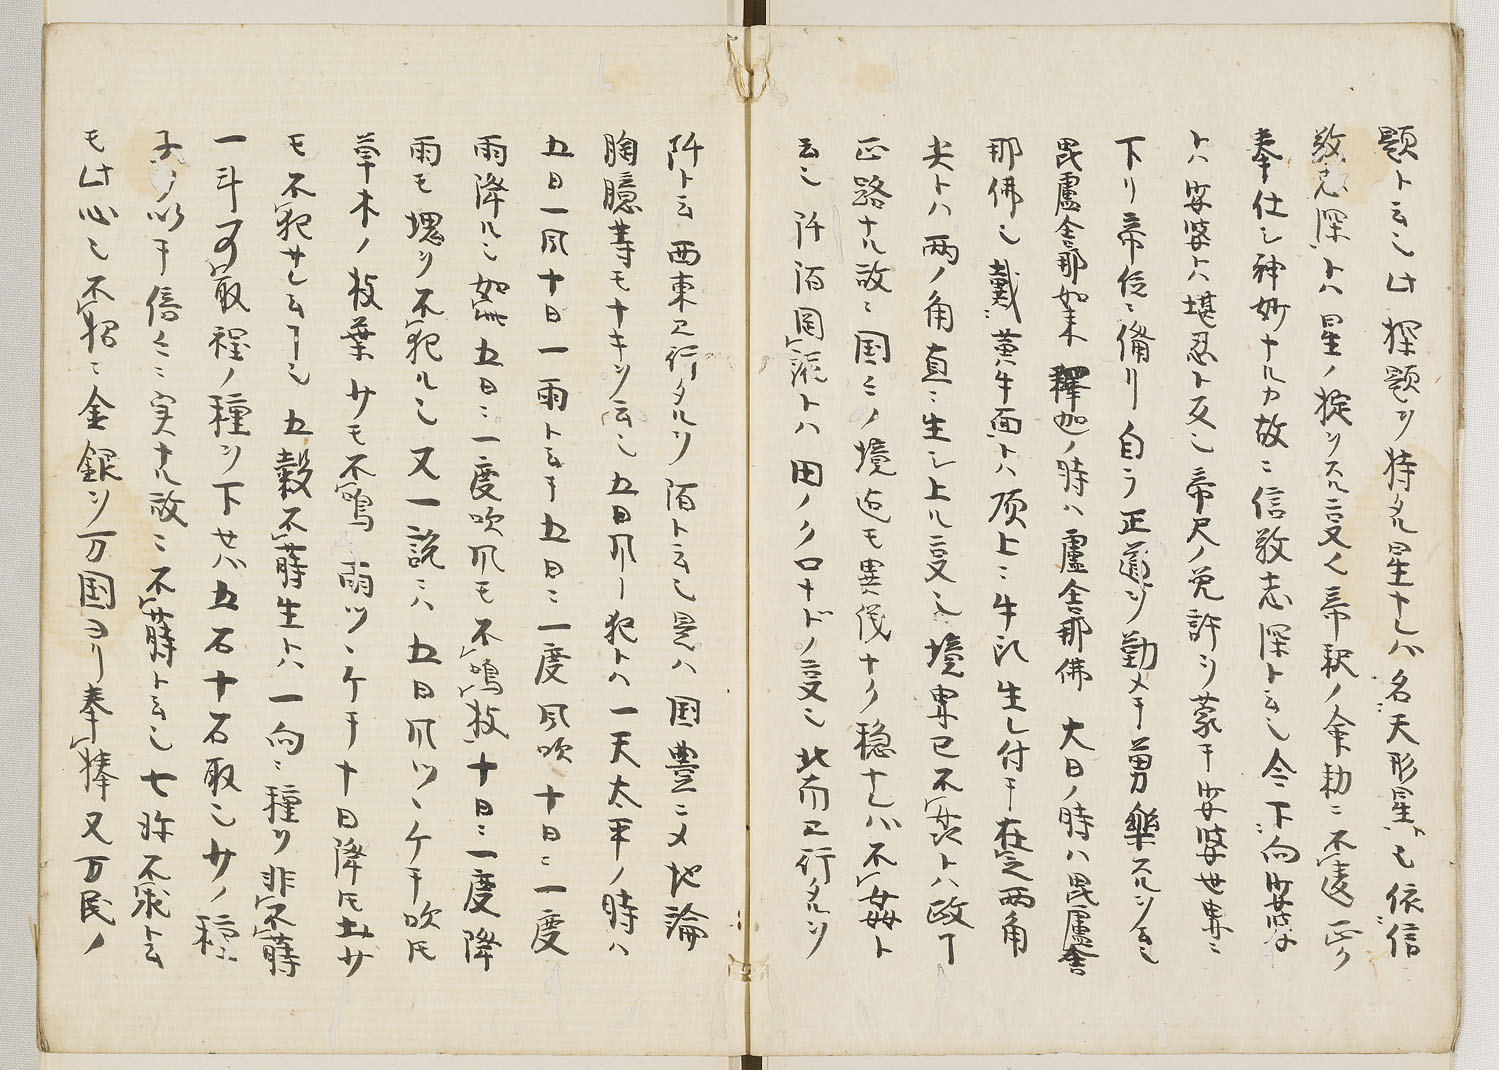 題ト云ヒ此探題ヲ持タル星ナレハ名天形星ﾞモ依信
敬志深トハ星ノ掟ヲスル言又ハ帝釈ノ余勅ニ不違正ク
奉仕シ神妙ナルカ故ニ信敬志深ト云ヒ令下向娑婆
トハ娑婆トハ堪忍ト反シ帝尺ノ免許ヲ蒙テ娑婆世界ニ
下リ帝位ニ備リ自ラ正道ヲ勤メテ勇樂スルヲ云ヒ
毘盧舎那如来釋迦ノ時ハ盧舎那佛大日ノ時ハ毘盧舎
那佛ヒ戴黄牛面トハ頂上ニ牛形生レ付テ在之両角
尖トハ両ノ角直ニ生シ上ル言又ヒ境界已不安次トハ政丁
正路ナル故ニ国ニノ境迄モ異儀ナク穏ナレハ不姦ト
云ヒ阡陌岡流トハ田ノクロナドノ言又ヒ北南エ行タルヲ
阡ト云西東エ行タルヲ陌ト云ヒ是ハ国豊ニメ地論
胸臆等モナキヲ云ヒ五日風不犯トハ一天太平ノ時ハ
五日一風十日一雨ト云テ五日ニ一度風吹十日ニ一度
雨降ルヒ如無五日ニ一度吹風モ不鳴枝十日ニ一度降
雨モ塊ヲ不犯ルヒ又一説ニハ五日風ツヽケテ吹モ
草木ノ枝葉サモ不鳴雨ツヽケテ十日降モ土サ
モ不犯サレ云丁ヒ五穀不蒔生トハ一向ニ種ヲ非不蒔
一斗可取程ノ種ヲ下セハ五石十石取ヒサノ種
子ヲ以テ倍々ニ実ナル故ニ不蒔ト云ヒ七珎不求ト云
モ此心ヒ不招ニ金銀ヲ万国ヨリ奉捧又万民ノ